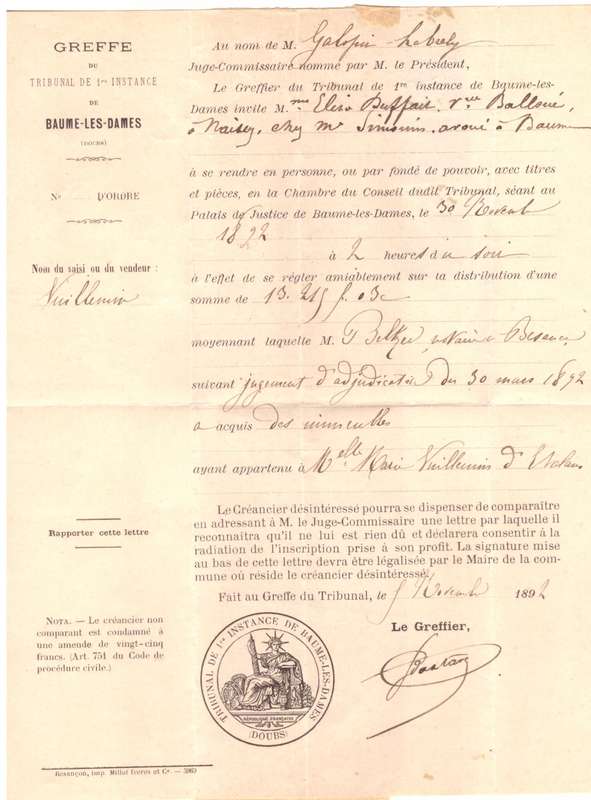 GREFFE
DU
TRIBUNAL DE 1re INSTANCE
DE
BAUME-LES-DAMES
(DOUBS)
N° D'ORDRE
Nom du saisi ou du vendeur :
Vuillemin
Rapporter cette lettre
NOTA. — Le créancier non
comparant est condamné à
une amende de vingt-cinq
francs. (Art. 751 du Code de
procédure civile.)
Au nom de M. Galopin
Juge-Commissaire nommé par M. le Président,
Le Greffier du Tribunal de 1re instance de Baume-les-
Dames invite M.me Elisa Vve
à Naisey, chez Me Simonin, avoué à Baume
à se rendre en personne, ou par fondé de pouvoir, avec titres
et pièces, en la Chambre du Conseil dudit Tribunal, séant au
Palais de Justice de Baume-les-Dames, le 30 Novemb
1892
à 2 heures du soir
à l'effet de se régler amiablement sur la distribution d'une
somme de 13.215 f. 03c
moyennant laquelle M. notaire à Besançon
suivant jugement d'adjudication du 30 mars 1892
a acquis des immeubles
ayant appartenu à Melle Marie Vuillemin d'
Le Créancier désintéressé pourra se dispenser de comparaître
en adressant à M. le Juge-Commissaire une lettre par laquelle il
reconnaîtra qu'il ne lui est rien dû et déclarera consentir à la
radiation de l'inscription prise à son profit. La signature mise
au bas de cette lettre devra être légalisée par le Maire de la com-
mune où réside le créancier désintéressé.
Fait au Greffe du Tribunal, le Novembre 1892
Le Greffier,
TRIBUNAL DE 1re INSTANCE DE BAUME-LES-DAMES
RÉPUBLIQUE FRANÇAISE
(DOUBS)
Besançon, imp. Millot frères et Cie. — 5969